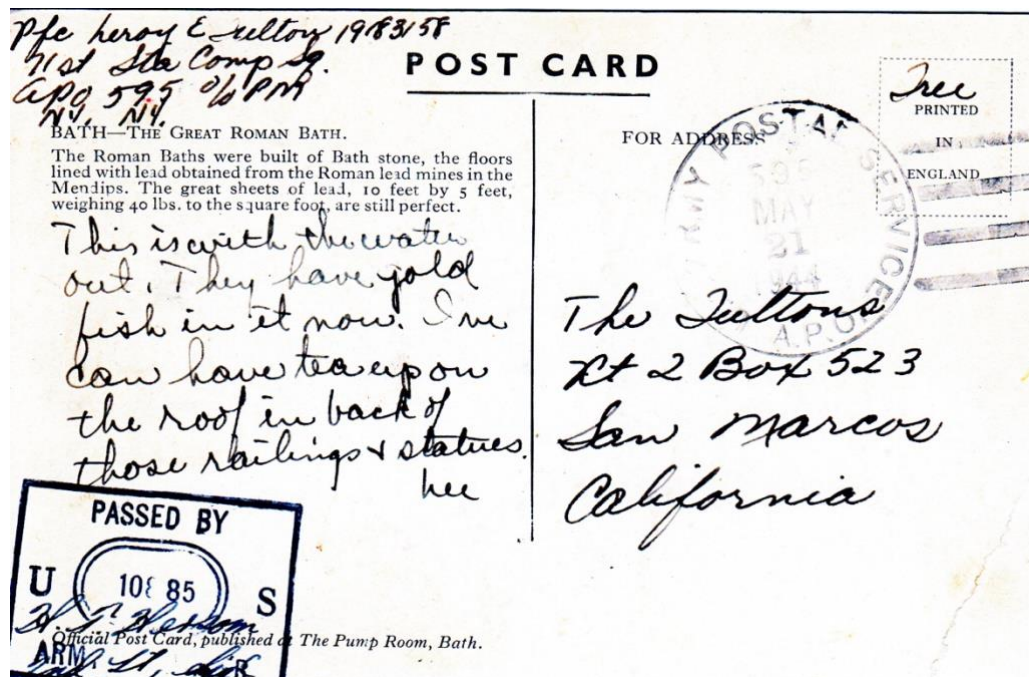 Pfc Leroy E Fulton 19183158
71st Sta Comp Sq.
APO 595 c/o PM
NY, NY.
POST CARD
BATH—THE GREAT ROMAN BATH.
The Roman Baths were built of Bath stone, the floors
lined with lead obtained from the Roman lead mines in the
Mendips. The great sheets of lead, 10 feet by 5 feet,
weighing 40 lbs. to the square foot, are still perfect.
This is with the water
out. They have gold
fish in it now. I've
can have tea up on
the roof in back of
those railings & statues.
Lee
FOR ADDRESS
Free
PRINTED
IN
ENGLAND
ARMY POSTAL SERVICE
595
MAY
21
1944
A.P.O.
The Fultons
Rt 2 Box 523
San Marcos
California
PASSED BY
U S
85
ARM
Official Post Card, published at The Pump Room, Bath.